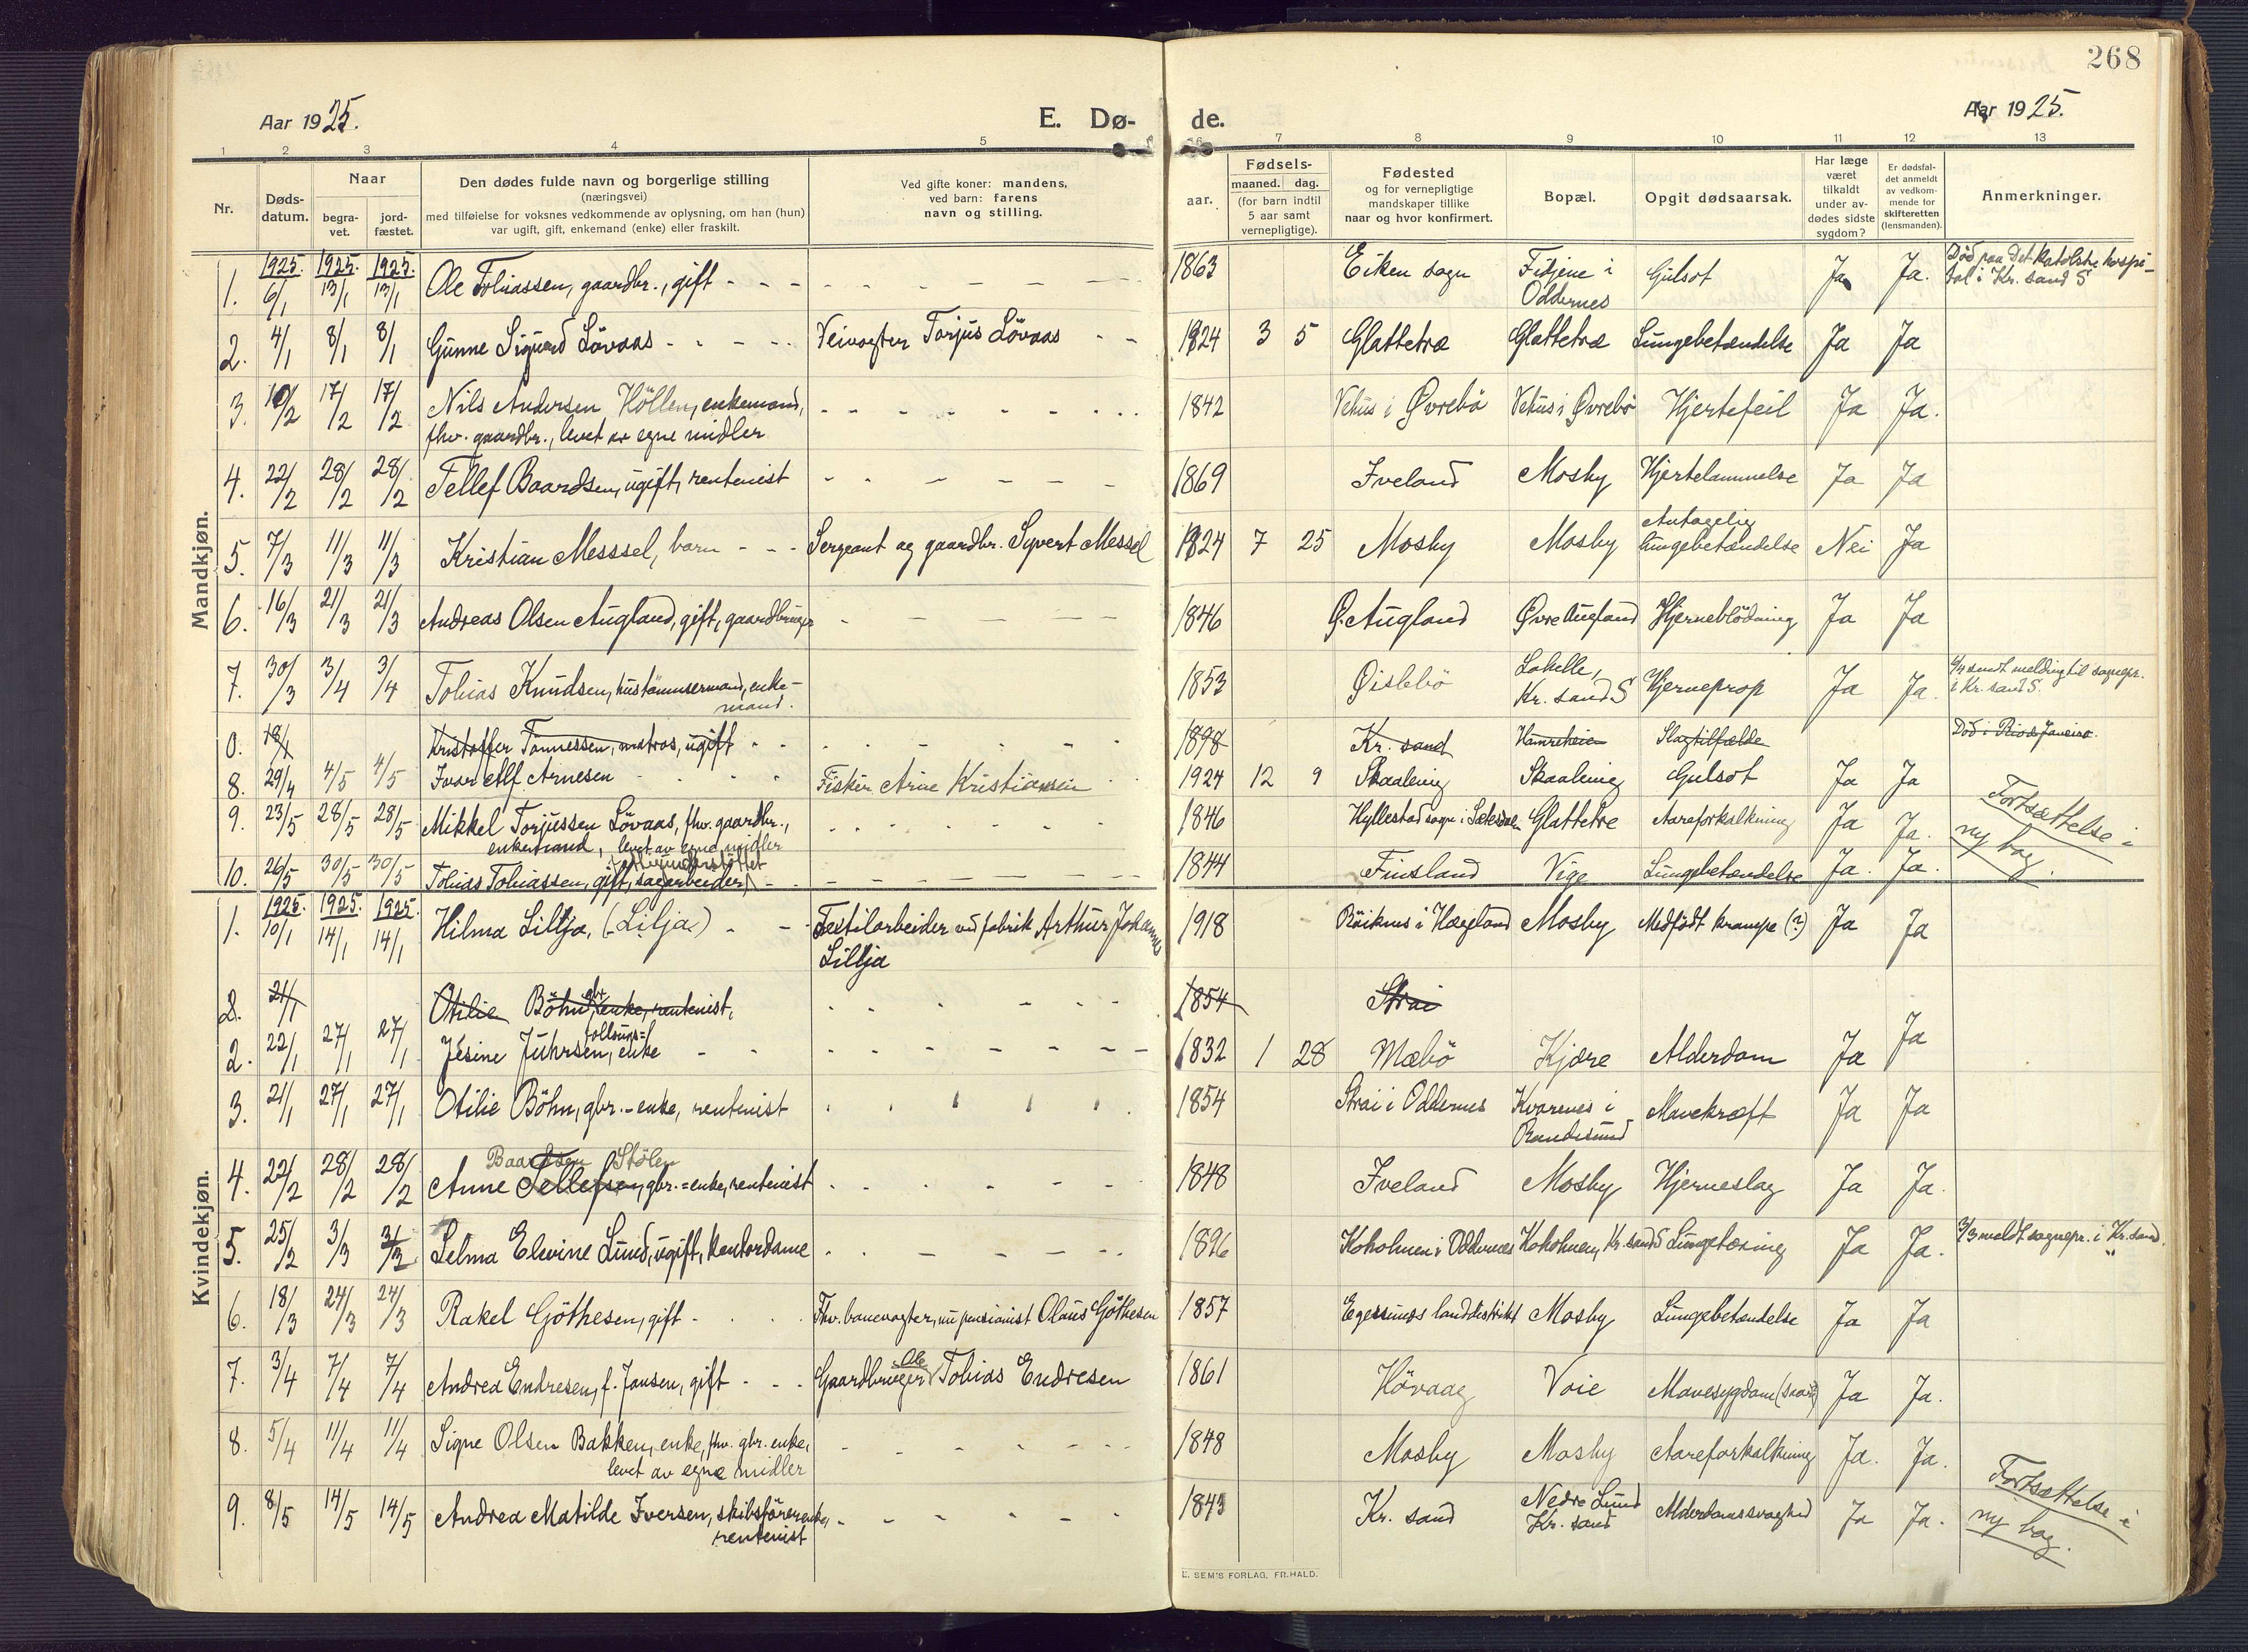 268
Aar 1925.
E. Dø-
de.
Aar 1925.
1 2 3 4 5 6 7 8 9 10 11 12 13
Nr.
Døds-
datum.
Naar
begra-
vet.
jord-
fæstet.
Den dødes fulde navn og borgerlige stilling
(næringsvei)
med tilføielse for voksnes vedkommende av oplysning, om han (hun)
var ugift, gift, enkemand (enke) eller fraskilt.
Ved gifte koner: mandens,
ved barn: farens
navn og stilling.
Fødsels-
aar.
maaned. dag.
(for barn indtil
5 aar samt
vernepligtige).
Fødested
og for vernepligtige
mandskaper tillike
naar og hvor konfirmert.
Bopæl.
Opgit dødsaarsak.
Har læge
været
tilkaldt
under av-
dødes sidste
sygdom?
Er dødsfal-
det anmeldt
av vedkom-
mende for
skifteretten
(lensmanden).
Anmerkninger.
Mandkjøn.
1925. 1925. 1925.
1. 6/1 13/1 13/1 Ole Tobiassen, gaardbr., gift - - - 1863 Eiken sogn Fidjene i Oddernes Gulsot Ja Ja. Død paa Det katolske hospi-
tal i Kr. sand S
2. 4/1 8/1 8/1 Gunne Sigurd Lövaas - - - Veivogter Torjus Lövaas - - 1924 3 5 Glattetræ Glattetræ Lungebetændelse Ja Ja
3. 10/2 17/2 17/2 Nils Andersen Höllen, enkemand, 1842 Vehus i Øvrebö Vehus i Øvrebö Hjertefeil Ja Ja.
fhv. gaardbr., levet av egne midler
4. 22/2 28/2 28/2 Tellef Baardsen, ugift, rentenist 1869 Iveland Mosby Hjertelammelse Ja Ja
5. 7/3 11/3 11/3 Kristian Messel, barn - - - Sergeant og gaardbr. Syvert Messel 1924 7 25 Mosby Mosby Antagelig
lungebetændelse Nei Ja
6. 16/3 21/3 21/3 Andreas Olsen Augland, gift, gaardbruger 1846 Ø. Augland Øvre Augland Hjerneblödning Ja Ja
7. 30/3 3/4 3/4 Tobias Knudsen, hustömmermand, enke-
mand. 1853 Øislebö Lahelle,
Kr. sand S Hjerneprop Ja Ja. 4/4 sendt melding til sognepr.
i Kr. sand S.
0. 18/1 Kristoffer Tönnessen, matros, ugift 1898 Kr. sand Hamreheia Slagtilfælde Död i Rio de Janeiro.
8. 29/4 4/5 4/5 Ivar Alf Arnesen Fisker Arne Kristiansen 1924 12 9 Skaaleviq Skaaleviq Gulsot Ja Ja
9. 23/5 28/5 28/5 Mikkel Torjussen Lövaas, fhv. gaardbr.,
enkemand, levet av egne midler 1846 Hyllestad sogn i Sætesdalen Glattetre Aareforkalkning Ja Ja.
10. 26/5 30/5 30/5 Tobias Tobiassen, gift, sagarbeider 1844 Finsland Vige Lungebetændelse Ja. Ja.
Fortsættelse i
ny bog.
Kvindekjøn.
1925. 1925. 1925.
1. 10/1 14/1 14/1 Hilma Lillja, (Lilja) - - Textilarbeider ved fabrik Arthur Johannes
Lillja 1918 Röiknes i Hægeland Mosby Medfödt krampe (?) Ja Ja
2. 21/1 Otilie Böhn, gbr. enke, rentenist, 1854 Strai
2. 22/1 27/1 27/1 Jesine Juhrsen, enke 1832 1 28 Mæbö Kjære Alderdom Ja Ja
3. 21/1 27/1 27/1 Otilie Böhn, gbr.-enke, rentenist 1854 Strai i Oddernes Kvarenes i
Randesund Mavekræft Ja Ja
4. 22/2 28/2 28/2 Baardsen Stölen
Anne Tellefsen, gbr.=enke, rentenist 1848 Iveland Mosby Hjerneslag Ja Ja.
5. 25/2 3/3 3/3 Selma Elevine Lund, ugift, kontordame 1896 Kokolmen i Oddernes Kokolmen, Kr. sand S Lungetæring Ja Ja. 3/3 meldt sognepr. i Kr. sand.
6. 18/3 24/3 24/3 Rakel Göthesen, gift - Fhv. banevogter, nu pensionist Olaus Göthesen 1857 Egersunds landdistrikt Mosby Lungebetændelse Ja Ja
7. 3/4 7/4 7/4 Andrea Endresen, f. Jansen, gift - - - Gaardbruger Ole Tobias Endresen 1861 Hövaag Voie Mavesygdom Ja Ja.
8. 5/4 11/4 11/4 Signe Olsen Bakken, enke, fhv. gbr. enke,
levet av egne midler 1848 Mosby Mosby Aareforkalkning Ja. Ja.
9. 8/5 14/5 14/5 Andrea Matilde Iversen, skibsförerenke,
rentenist 1843 Kr. sand Nedre Lund
Kr. sand Alderdomssvaghed Ja Ja.
Fortsættelse i
ny bog.
E. SEM'S FORLAG, FR.HALD.